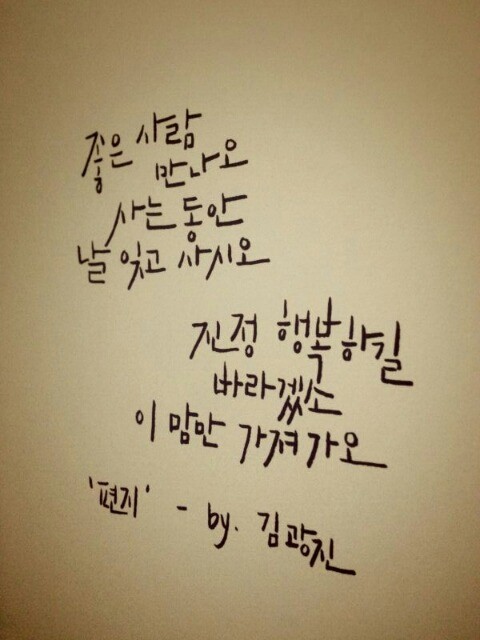 좋은 사람
만나오
사는 동안
날 잊고 사시오
진정 행복하킬
바라겠소
이 맘만 가져가오
'편지' - by. 김광진